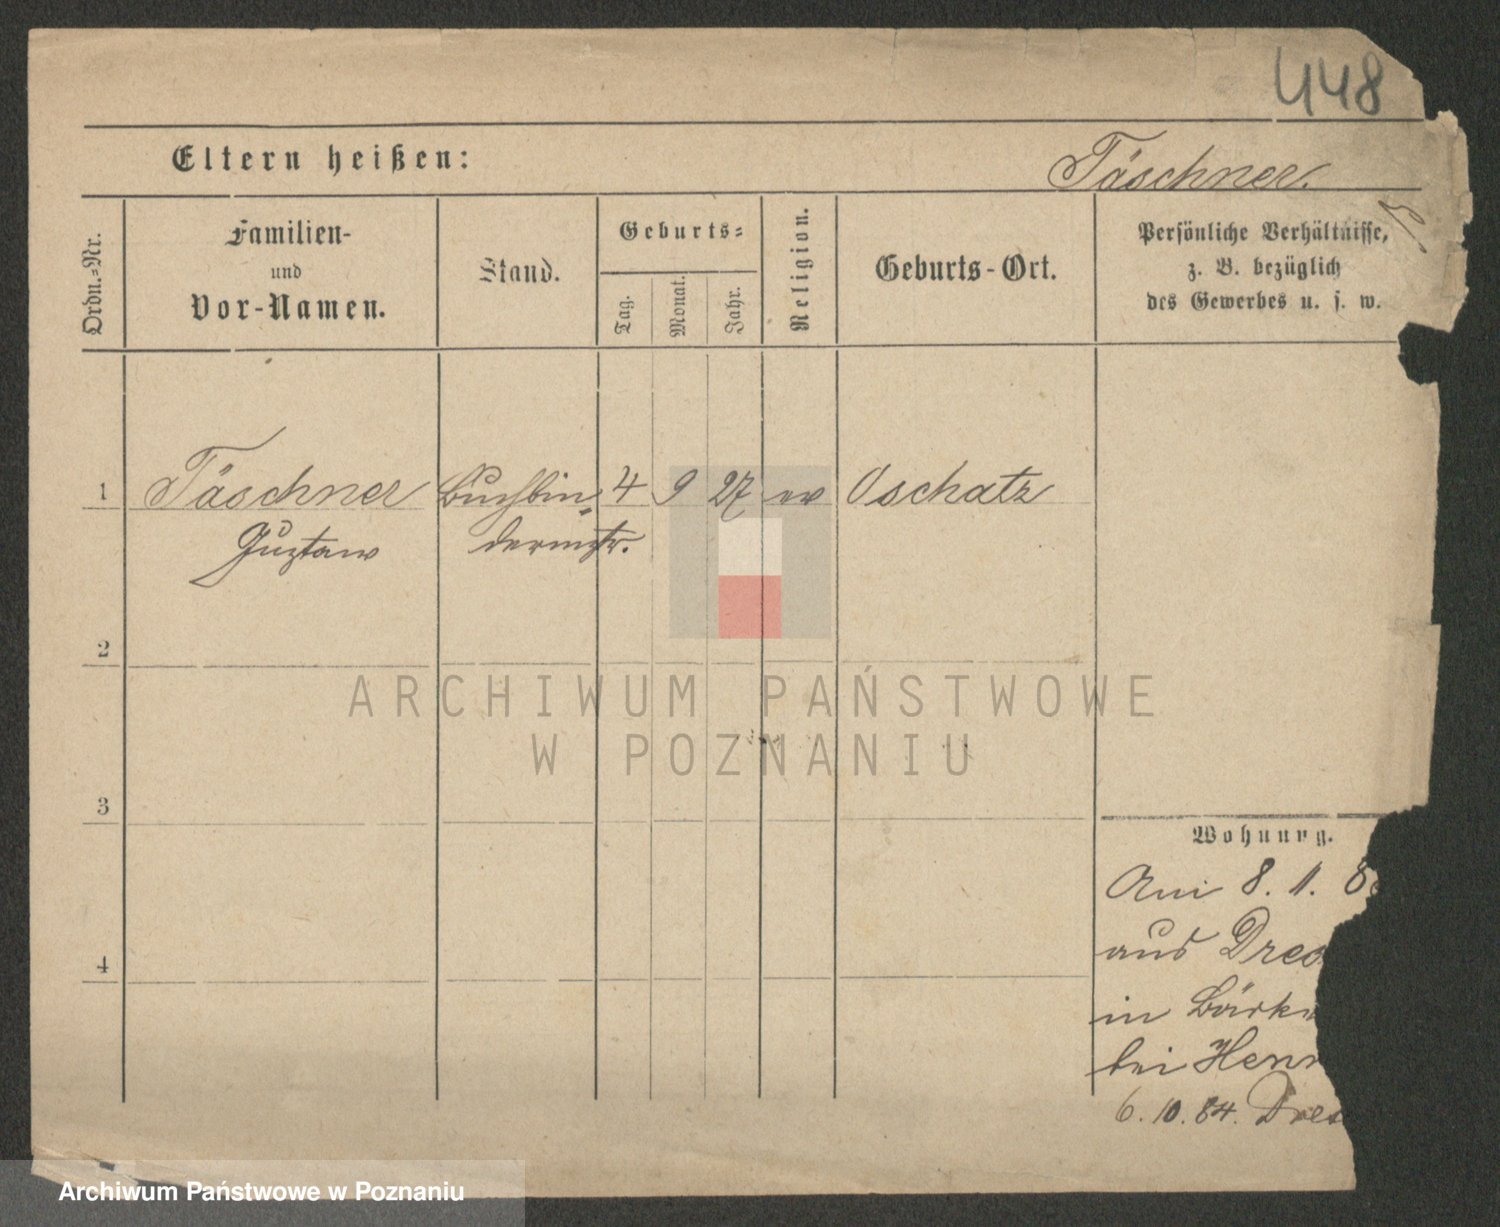 448
Eltern heißen:
Täschner.
Ordn.-Nr.
Familien-
und
Vor-Namen.
Stand.
Geburts-
Tag.
Monat.
Jahr.
Religion.
Geburts-Ort.
Persönliche Verhältnisse,
z. B. bezüglich
des Gewerbes u. s. w.
1 Täschner Buchbin- 4 9 27 ev Oschatz
Gustav dermstr.
2
ARCHIWUM PAŃSTWOWE
W POZNANIU
3
Wohnung.
8. 11. 8
aus Dres
in
bei Henr
4
6. 10. 84. Dres
Archiwum Państwowe w Poznaniu